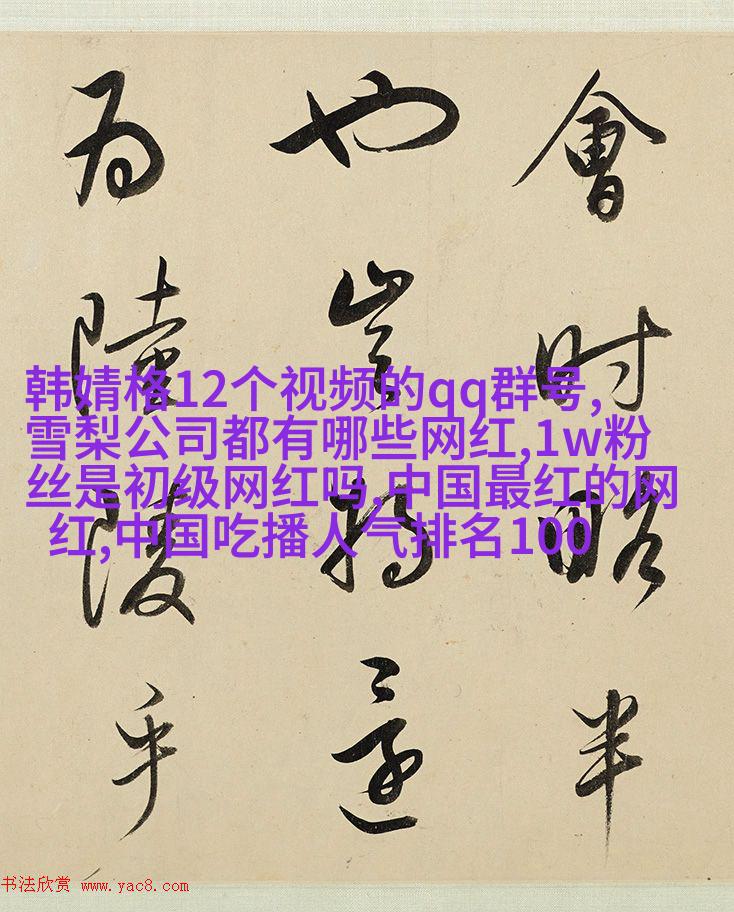 會时略半
也豈将還
為陸陵乎
韩婧格12个视频的qq群号,
雪梨公司都有哪些网红,1w粉
丝是初级网红吗,中国最红的网
红,中国吃播人气排名100
书法欣赏 www.yac8.com